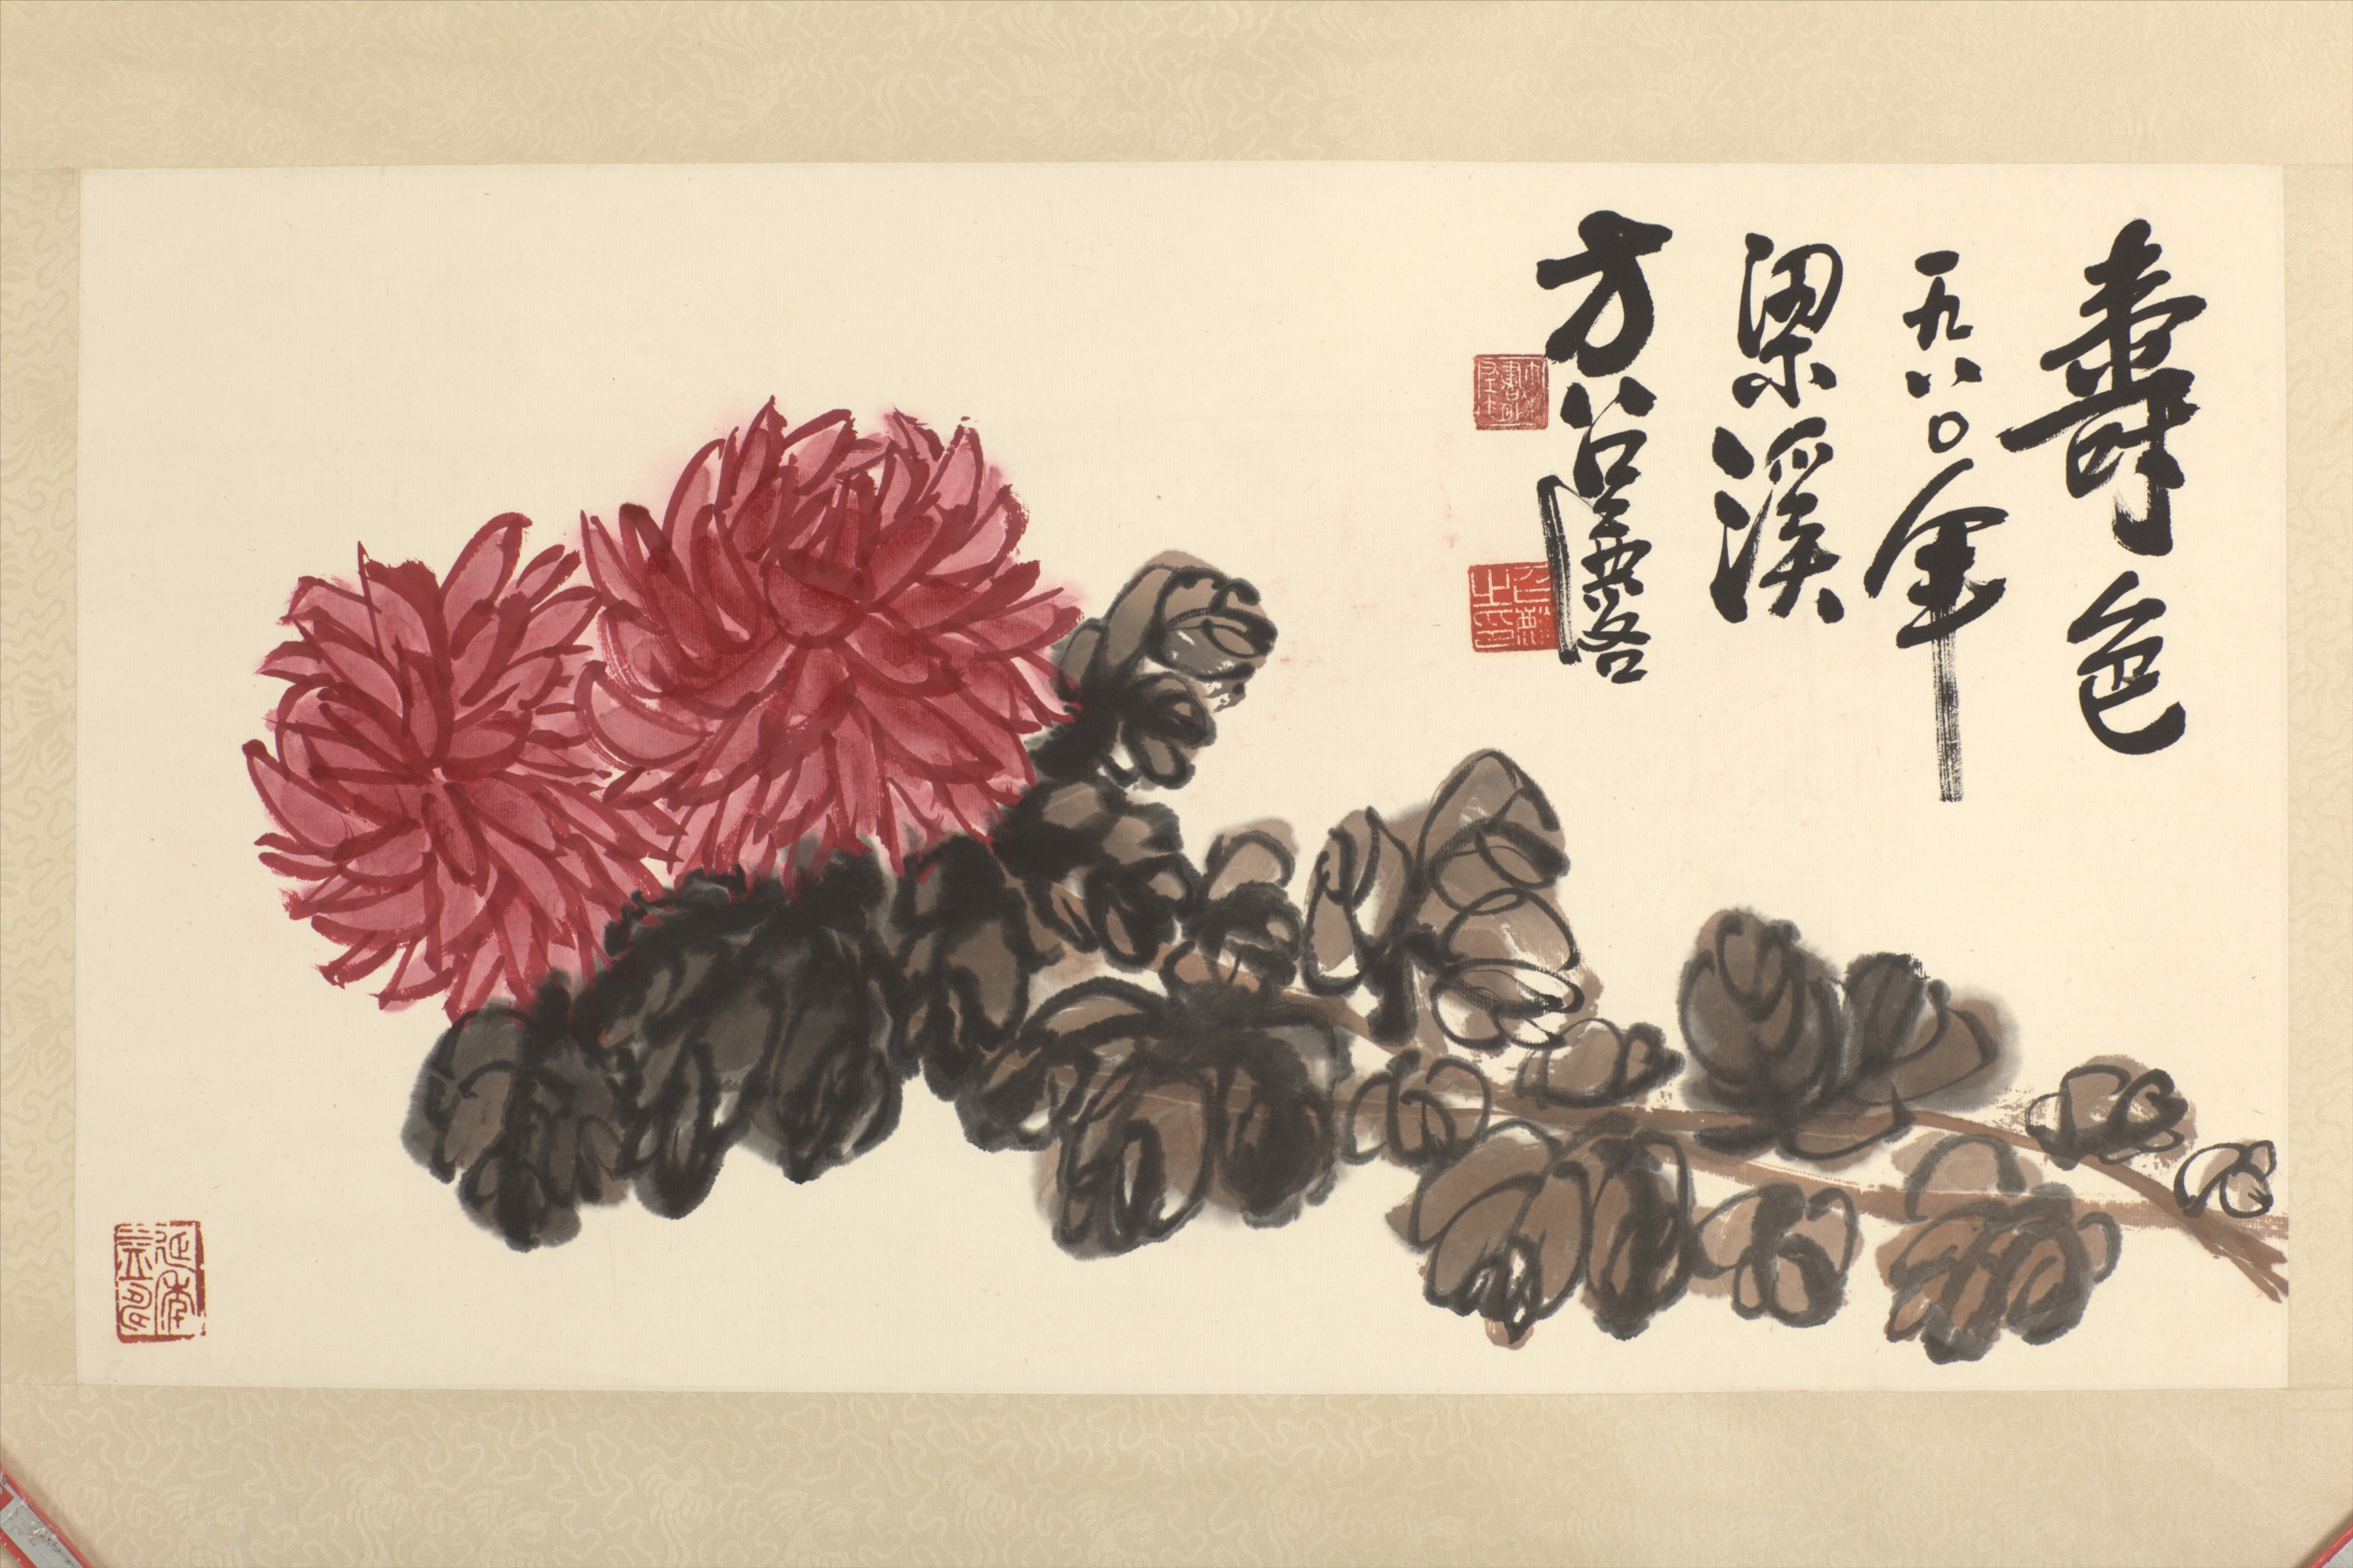 壽色
一九八〇年
梁溪
方召麐